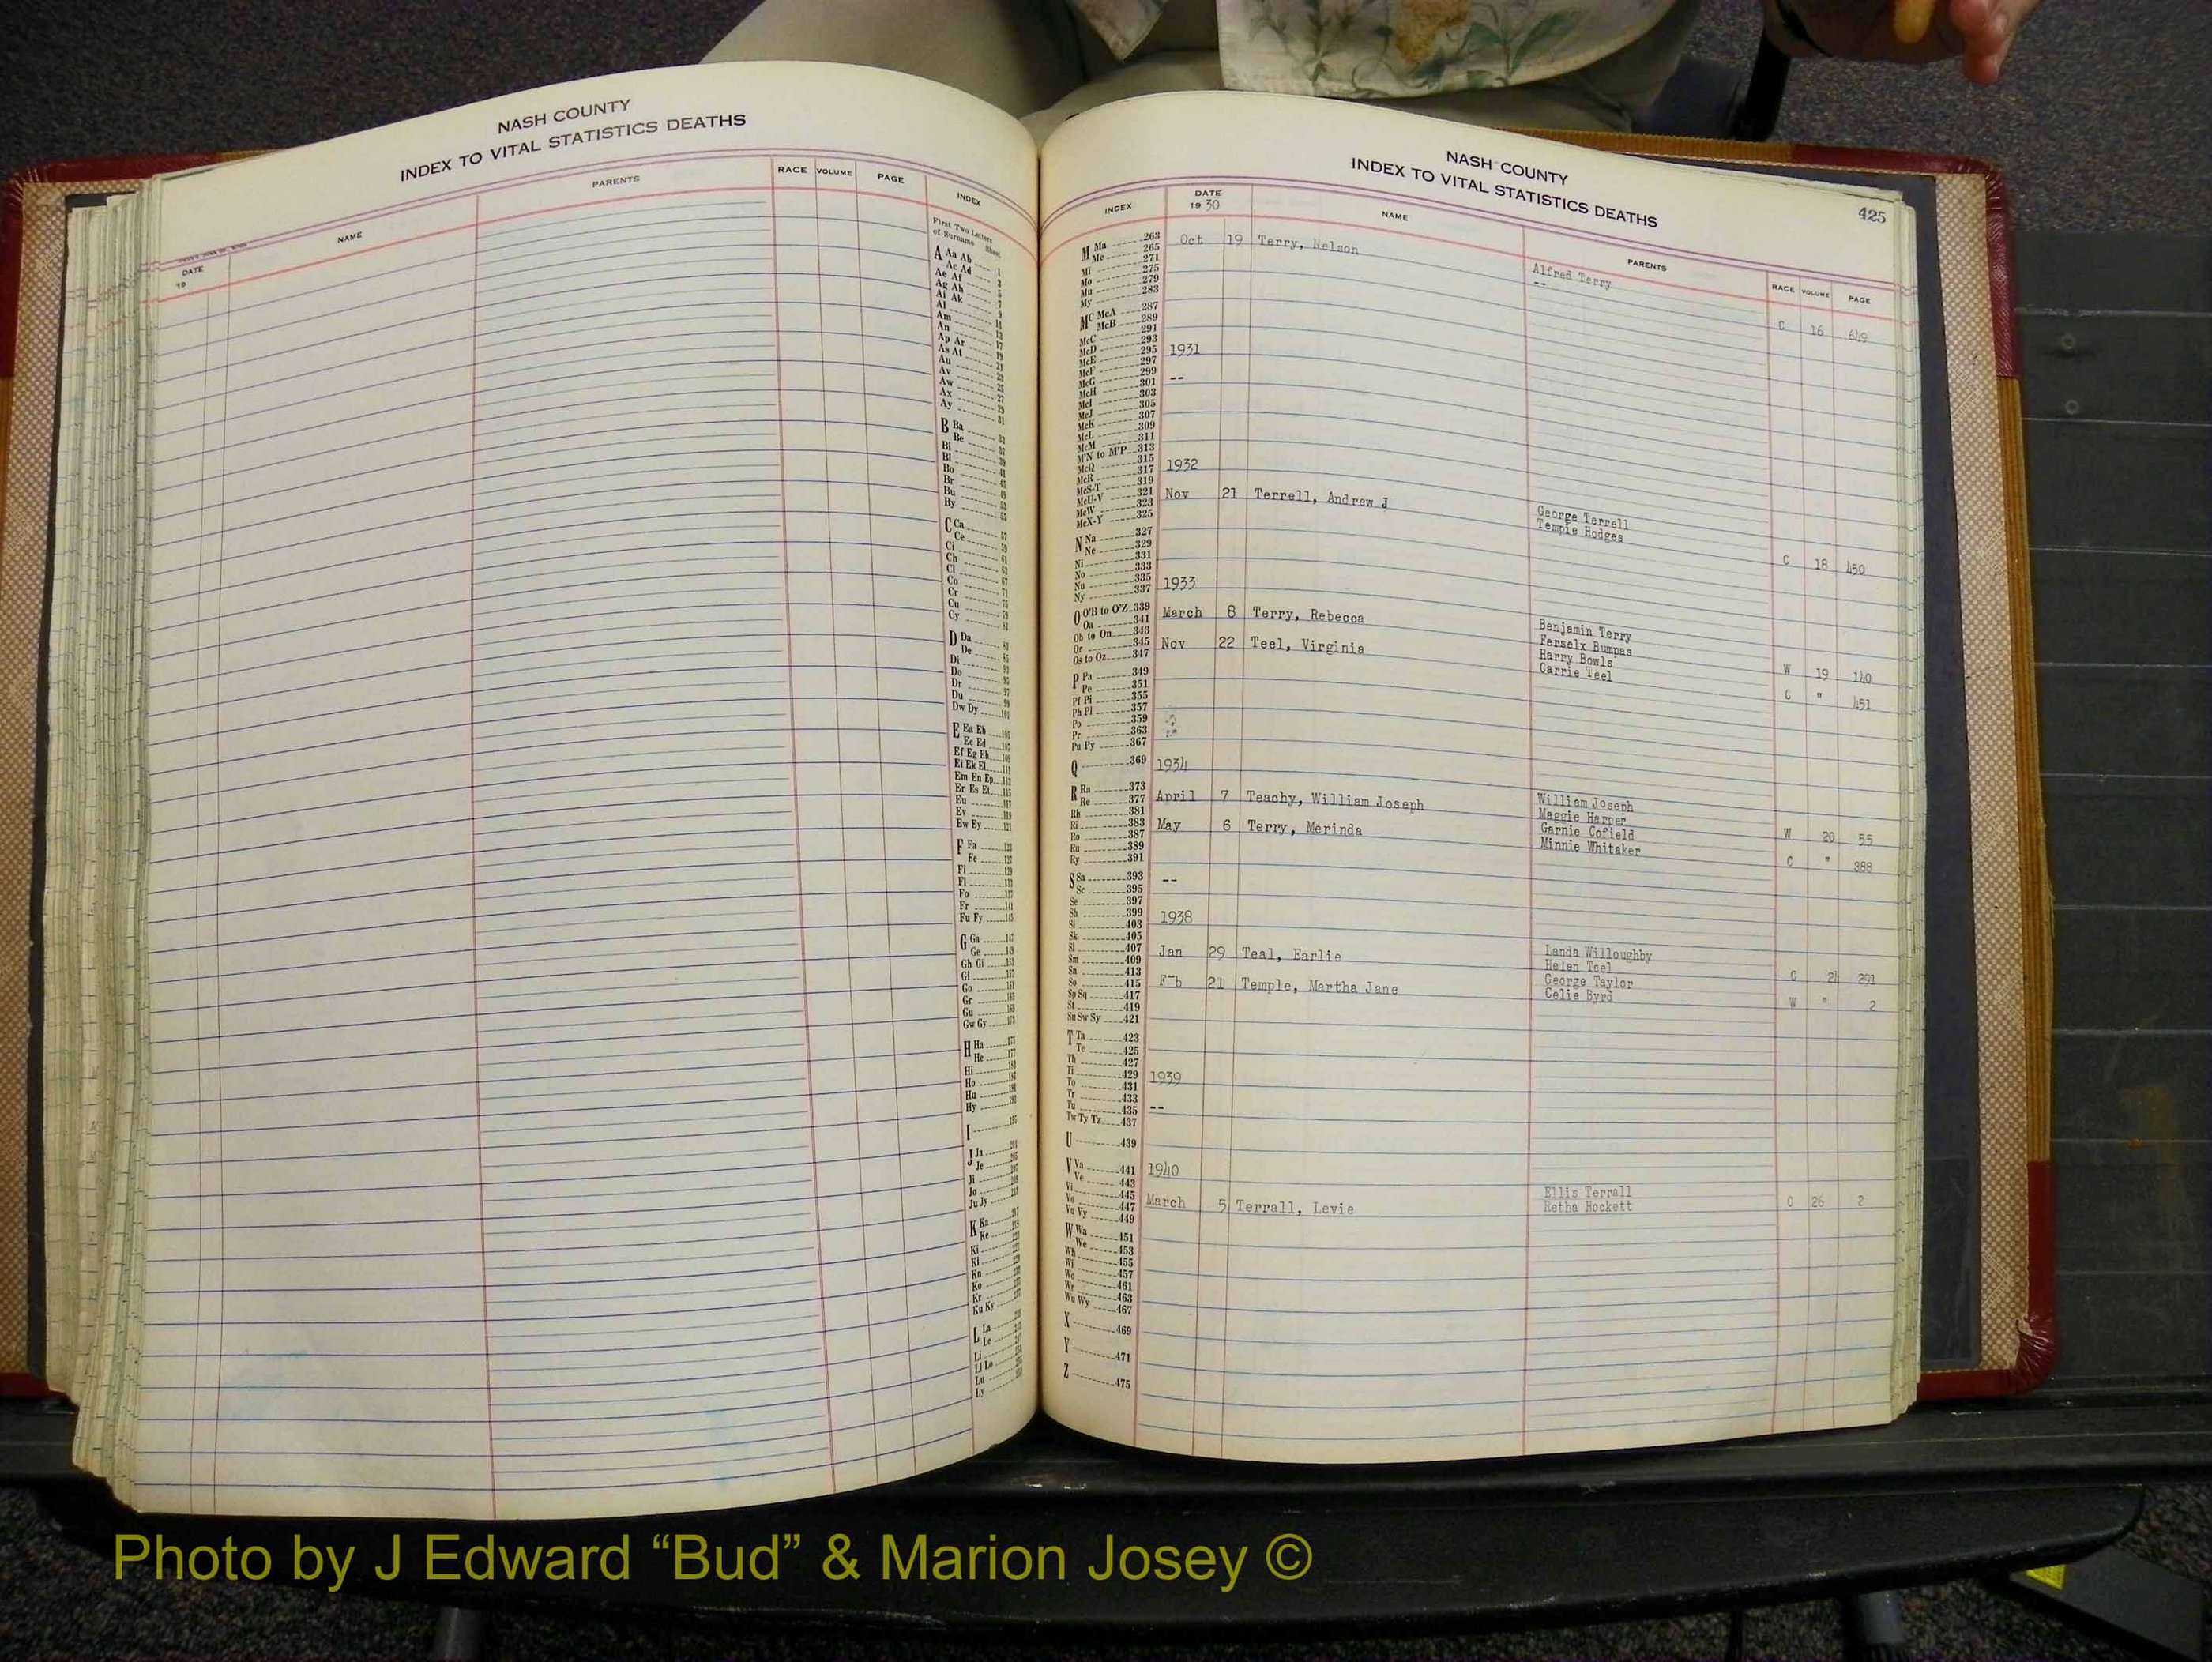 NASH COUNTY
INDEX TO VITAL STATISTICS DEATHS
DATE
19
NAME
PARENTS
RACE
VOLUME
PAGE
INDEX
First Two Letters
of Surname Sheet
A Aa Ab 1
Ac Ad 3
Ae Af 5
Ag Ah 7
Ai Ak 9
Al 11
Am 13
An 17
Ap Ar 19
As At 21
Au 23
Av 25
Aw 27
Ax 29
Ay 31
B Ba 33
Be 37
Bi 39
Bl 41
Bo 45
Br 49
Bu 53
By 55
C Ca 57
Ce 59
Ci 61
Ch 63
Cl 67
Co 71
Cr 75
Cu 79
Cy 81
D Da
De
Di
Do
Dr
Du 99
Dw Dy 101
E Ea Eb 105
Ec Ed 107
Ef Eg Eh 109
Ei Ek El 111
Em En Ep 113
Er Es Et 115
Eu 117
Ev 119
Ew Ey 121
F Fa 123
Fe 127
Fi 129
Fl 133
Fo 137
Fr 141
Fu Fy 145
G Ga 147
Ge 149
Gh Gi 153
Gl 157
Go 161
Gr 165
Gu 169
Gw Gy 173
H Ha 175
He 177
Hi
Ho
Hu
Hy
I 195
J Ja 201
Je
Ji
Jo
Ju Jy
K Ka
Ke
Ki
Kl
Kn
Ko
Kr
Ku Ky
L La
Le
Li
Ll Lo
Lu
Ly
NASH COUNTY
INDEX TO VITAL STATISTICS DEATHS
425
INDEX
DATE
19 30
NAME
PARENTS
RACE
VOLUME
PAGE
M Ma 263
Me 265
271
Mi 275
Mo 279
Mu 283
My
Mc McA 287
McB 289
McC 291
McD 293
McE 295
McF 297
McG 299
McH 301
McI 303
McJ 305
McK 307
McL 309
McM 311
M'N to M'P 313
McQ 315
McR 317
McS-T 319
McU-V 321
McW 323
McX-Y 325
N Na 327
Ne 329
Ni 331
No 333
Nu 335
Ny 337
O O'B to O'Z 339
Oa 341
Ob to On 343
Or 345
Os to Oz 347
P Pa 349
Pe 351
Pf Pi 355
Ph Pl 357
Po 359
Pr 363
Pu Py 367
Q 369
R Ra 373
Re 377
Rh 381
Ri 383
Ro 387
Ru 389
Ry 391
S Sa 393
Sc 395
Se 397
Sh 399
Si 403
Sk 405
Sl 407
Sm 409
Sn 413
So 415
Sp Sq 417
St 419
Su Sw Sy 421
T Ta 423
Te 425
Th 427
Ti 429
To 431
Tr 433
Tu 435
Tw Ty Tz 437
U 439
V Va 441
Ve 443
Vi 445
Vo 447
Vu Vy 449
W Wa 451
We 453
Wh 455
Wi 457
Wo 461
Wr 463
Wu Wy 467
X 469
Y 471
Z 475
Oct 19 Terry, Nelson Alfred Terry C 16 649
--
1931
--
1932
Nov 21 Terrell, Andrew J George Terrell C 18 450
Temple Hodges
1933
March 8 Terry, Rebecca Benjamin Terry W 19 140
Ferselx Bumpas
Nov 22 Teel, Virginia Harry Bowls C " 451
Carrie Teel
1934
April 7 Teachy, William Joseph William Joseph W 20 55
Maggie Harper
May 6 Terry, Merinda Garnie Cofield C " 388
Minnie Whitaker
--
1938
Jan 29 Teal, Earlie Landa Willoughby C 24 291
Helen Teel
F b 21 Temple, Martha Jane George Taylor W " 2
Celie Byrd
1939
--
1940
March 5 Terrall, Levie Ellis Terrall C 26 2
Retha Hockett
Photo by J Edward “Bud” & Marion Josey ©